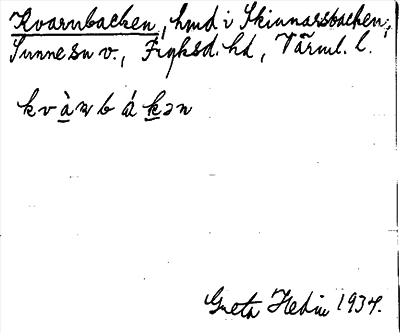 Kvarnbacken, hmd i Skinnarsbacken,
Sunne sn v., Fryksd. hd, Värml. l.
kvànbákən
Greta Hedin 1934.